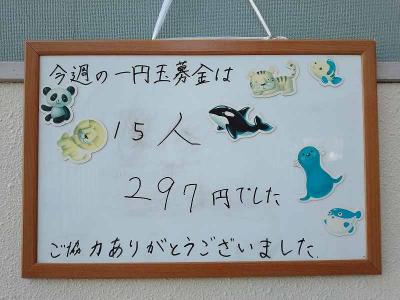 今週の一円玉募金は
15人
297円でした
ご協力ありがとうございました.